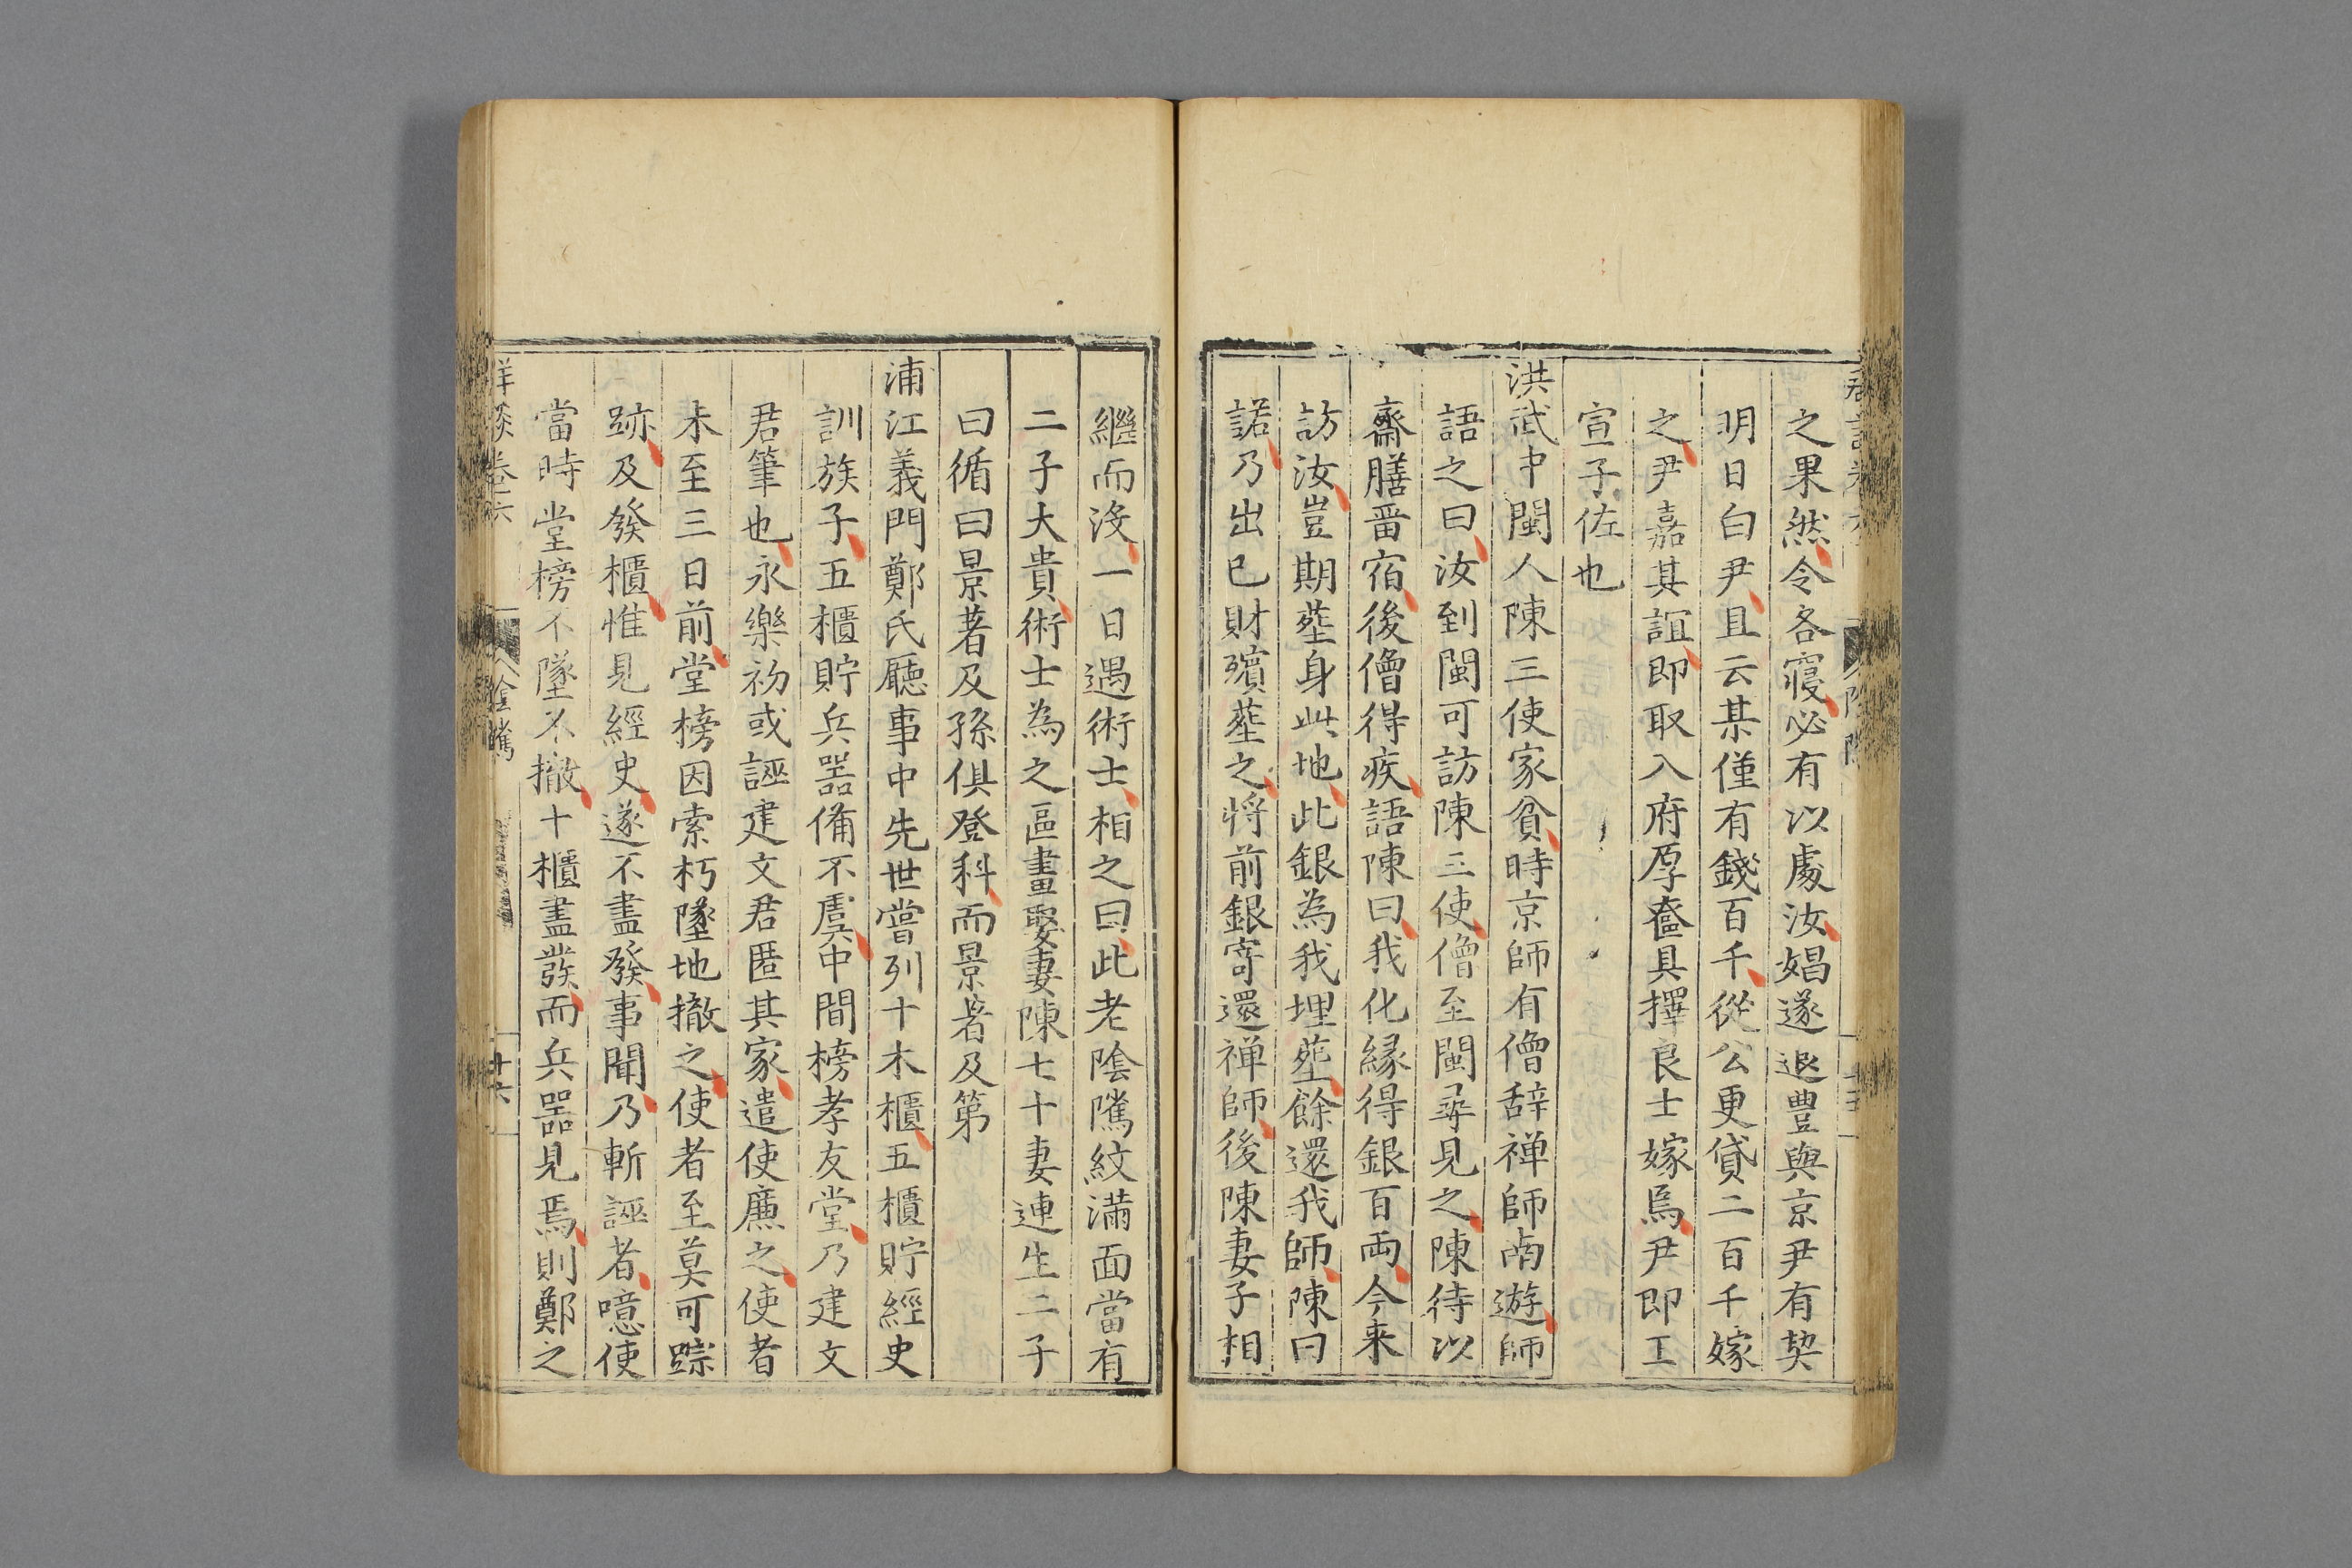 之果然令各寢必有以處汝娼遂退豊與京尹有契
明日白尹且云某僅有錢百千從公更貸二百千嫁
之尹嘉其誼即取入府厚奩具擇良士嫁焉尹即王
宣子佐也
洪武中閩人陳三使家貧時京師有僧辞禅師南遊師
語之曰汝到閩可訪陳三使僧至閩尋見之陳待以
齋膳畱宿後僧得疾語陳曰我化緣得銀百両今来
訪汝豈期塟身此地此銀為我埋塟餘還我師陳曰
諾乃出已財殯塟之将前銀寄還禅師後陳妻子相
繼而没一日遇術士相之曰此老陰隲紋滿面當有
二子大貴術士為之區畫娶妻陳七十妻連生二子
曰循曰景著及孫俱登科而景著及第
浦江義門鄭氏廳事中先世嘗列十木櫃五櫃貯經史
訓族子五櫃貯兵噐備不虞中間榜孝友堂乃建文
君筆也永樂初或誣建文君匿其家遣使廉之使者
未至三日前堂榜因索朽墜地撤之使者至莫可踪
跡及發櫃惟見經史遂不盡發事聞乃斬誣者噫使
當時堂榜不墜不撤十櫃盡發而兵噐見焉則鄭之
卷六
陰隲
十六